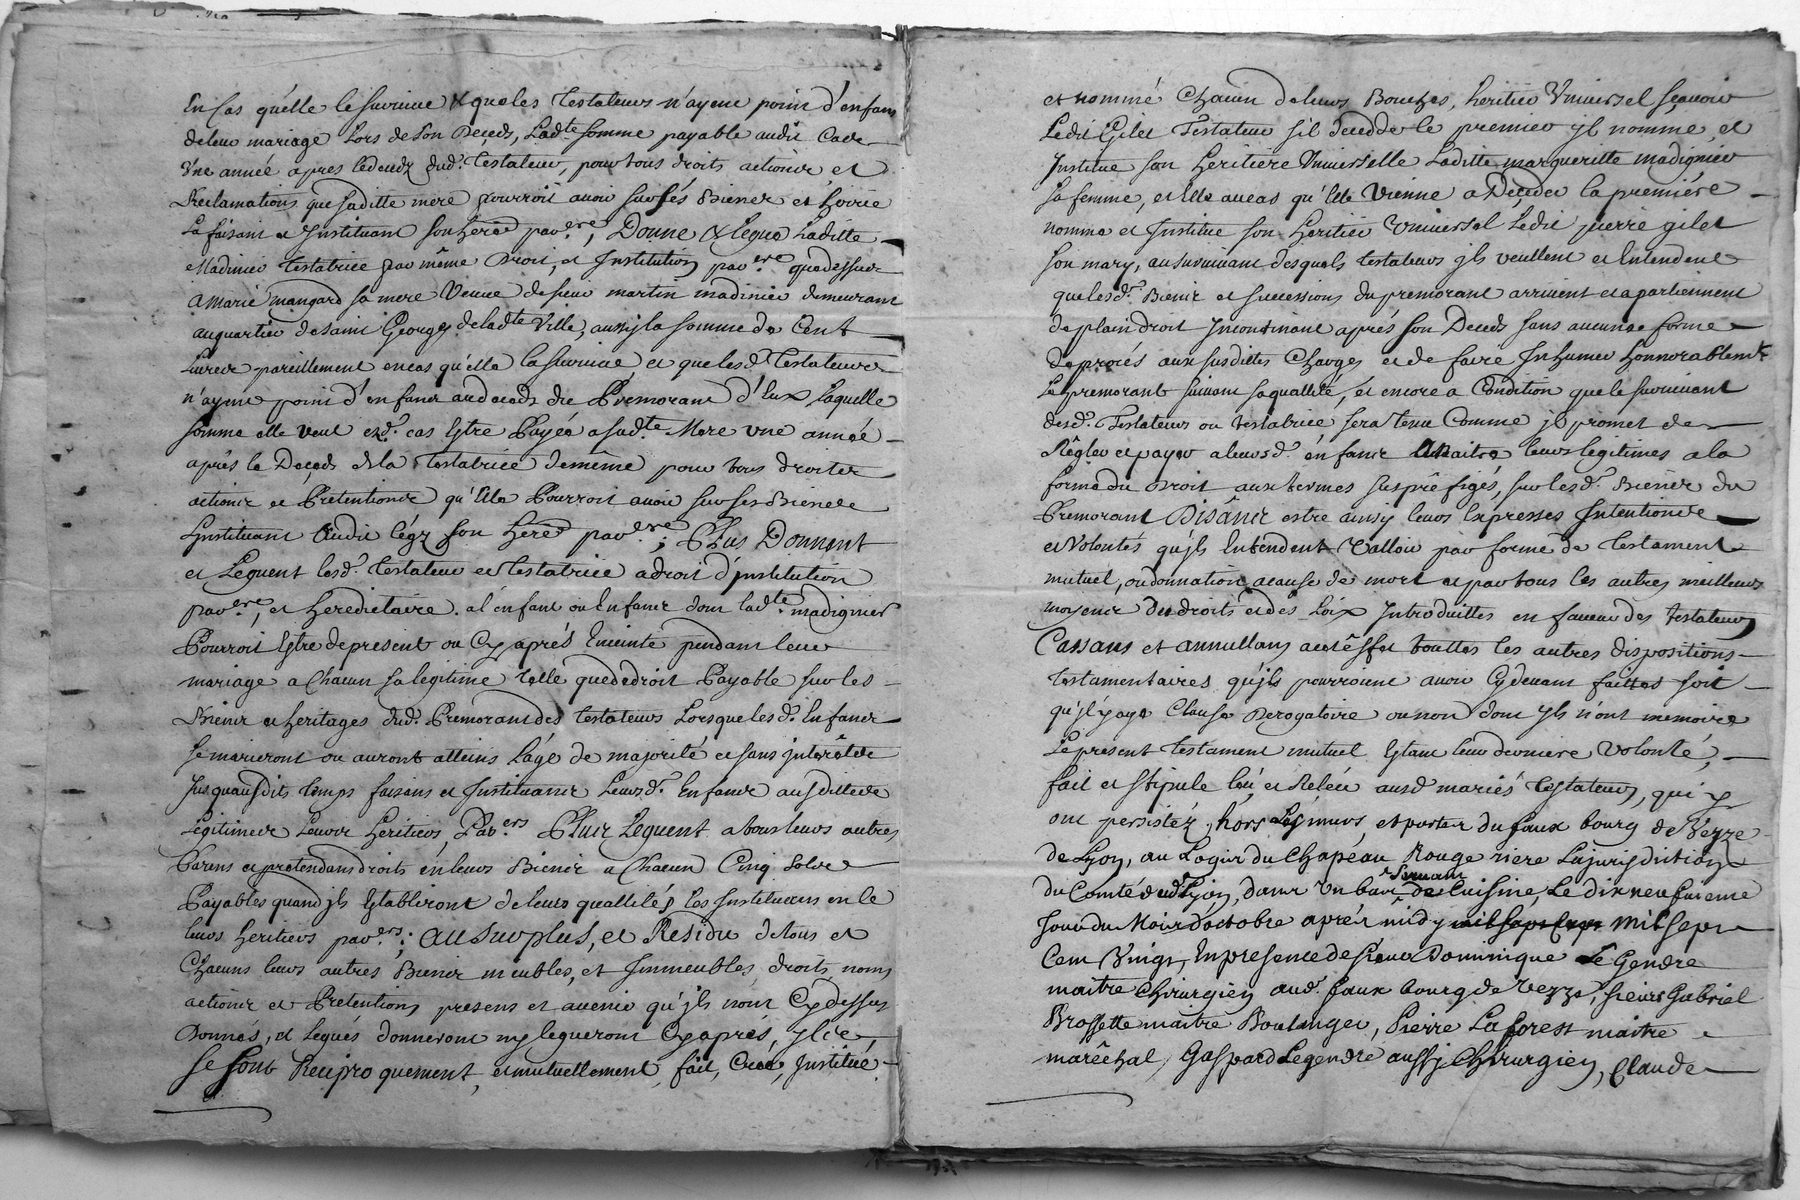 En cas qu'elle le survive & que les Testateurs n'ayent point d'enfans
de leur mariage Lors de son Deceds, Lad.te somme payable audit Cas
Une année apres le deceds dud.t Testateur, pour tous droits actions et
Reclamations que saditte mere pourroit avoir sur ses Biens et hoirie
La faisant et Instituant son herre par.ere, Donne & Legue Laditte
Madinier testatrice par même Droit, et Institution par.ere que dessus
a Marie mangard sa mere Veuve de sieur martin madinier demeurant
au quartier de saint George de lad.te Ville, aussy la somme de Cent
Livres pareillement en cas qu'elle la survive et que lesd.t Testateurs
n'ayent point d'enfans au deceds du Prémorant d'Eux, Laquelle
somme elle veut aud.t cas Estre Payée a sad.te Mere une année
aprés le Deceds de la Testatrice de même pour tous droits
actions et Pretentions qu'Elle Pourroit avoir sur ses Biens
Instituant audit légz son here par.ere; Plus Donnent
et Leguent lesd.t Testateur et testatrice a droit d'institution
par.ere, et hereditaire. a l'enfant ou Enfans dont lad.te madignier
Pourroit Estre de present ou Cy aprés Enceinte pendant leur
mariage a Chacun sa legitime telle que de droit Payable sur les
Biens et heritages dud.t Premorant des testateurs Lorsque lesd.t Enfans
se marieront ou auront atteins L'age de majorité et sans interêts
Jusqu'ausdits temps faisans et Instituans Leursd.t Enfans ausdittes
Legitimes Leurs heritiers Par.ers Plus Leguent a tous leurs autres
Parens et pretendans droits en leurs Biens a Chacun Cinq solz
Payables quand ils Establiront de leurs quallités les Instituans en ce
leurs heritiers par.ers; Au surplus, et Residu de tous et
Chacuns leurs autres Biens meubles, et Immeubles, droits, noms
actions et Pretentions presens et avenir qu'ils n'ont Cy dessus
Donnés, et Legués donneront ny legueront Cy aprés, ils
se sont Reciproquement, et mutuellement, fait, Créé, Institué
et nommé Chacun de leurs Bouches, heritier Universel sçavoir
Ledit Gilet Testateur s'il decedde le premier il nomme et
Institue son heritiere Universelle Laditte margueritte madignier
sa femme, et Elle au cas qu'Elle Vienne a Deceder la premiére
nomme et Institue son heritier Universel Ledit pierre gilet
son mary, au survivant desquels testateurs ils veullent et Entendent
que lesd.t Biens et successions du premorant arrivent et apartiennent
de plain droit Incontinant aprés son Deceds sans aucune forme
de procés aux susdittes Charges et de faire Inhumer honnorablem.t
Le premorant suivant sa quallité, et encore a Condition que le survivant
desd.t Testateurs ou testatrice sera tenu Comme il promet de
Régler et payer a leursd.t enfans A naitre leurs legitimes a la
forme du Droit aux termes sus préfigés, sur lesd.t Biens du
Premorant Disânts estre ainsy leurs Expresses Intentions
et Volontés qu'ils Entendent Valloir par forme de testament
mutuel, ou donnation acause de mort et par tous les autres meilleurs
moyens des droits et des Loix Introduittes en faveur des testateurs
Cassans et annullans a cet êffet touttes les autres dispositions
testamentaires qu'ils pourroient avoir Cy devant faittes soit
qu'il y aye Clause Derogatoire ou non dont ils n'ont memoire
Le present testament mutuel Estant leur derniere Volonté,
fait et stipule lêu et Relêu ausd mariés testateurs, qui y
ont persistéz, hors Les murs, et portes du faux bourg de Vezze
de Lyon, au Logis du Chapeau Rouge riere La jurisdiction
du Comté dud Lyon, dans Un bas servant de Cuisine, Le dix neufvieme
Jour du Mois d'octobre aprés midy mil sept Cens Mil sept
Cent Vingt, En presence de sieur Dominique Le Gendre
maitre Chirurgien aud. faux bourg de Vezze, sieurs Gabriel
Brossette maitre Boulanger, Pierre Laforest maitre
marêchal, Gaspard Legendre aussy Chirurgien, Claude